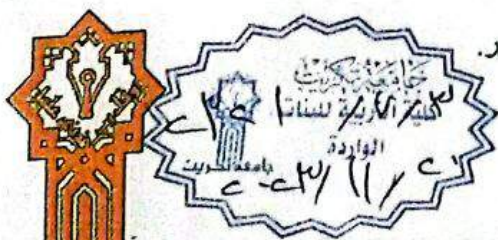 جامعة تكريت
كلية التربية للبنات
الواردة
جامعة تكريت
٢٠٢٣/١١/٢١